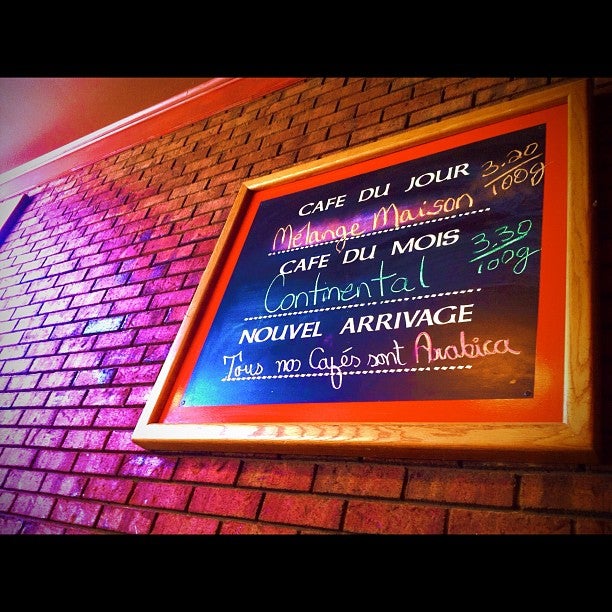 CAFE DU JOUR
Mélange Maison 3.20/100g
CAFE DU MOIS
Continental 3.30/100g
NOUVEL ARRIVAGE
Tous nos Cafés sont Arabica